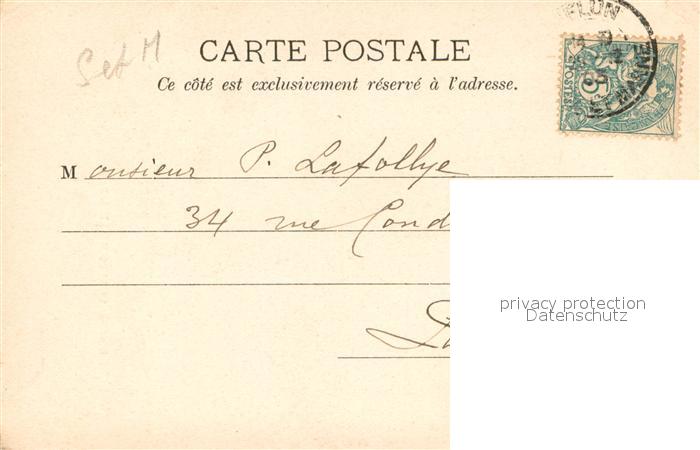 Set M
CARTE POSTALE
Ce côté est exclusivement réservé à l'adresse.
Monsieur P. Lafollye
34 rue Cond
privacy protection
Datenschutz
5
POSTES
ET MARNE